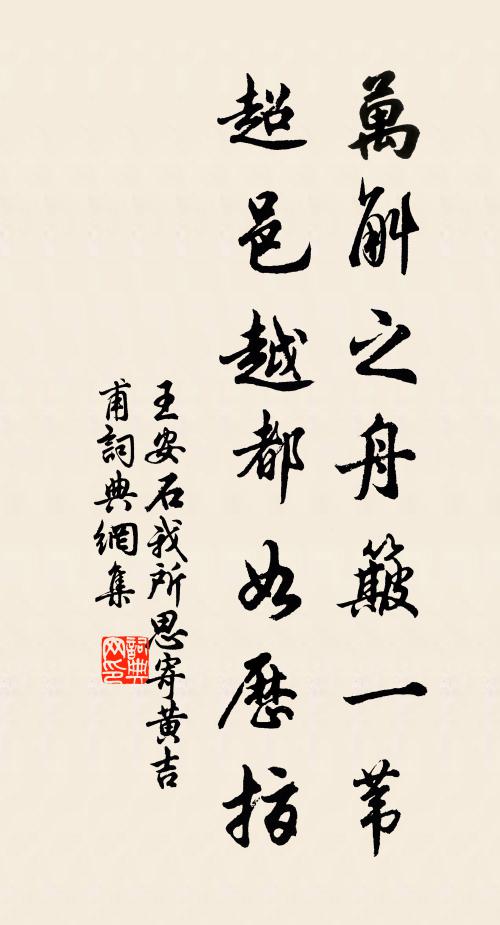 萬斛之舟簸一葦
超邑越都如歷指
王安石我所思寄黃吉
甫詞典網集
詞典
网印